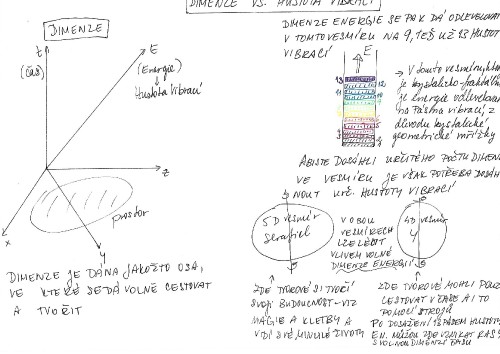 DIMENZE VS. HUSTOTA VIBRACÍ
DIMENZE
t
(čas)
E
(Energie)
Hustota Vibrací
z
prostor
x
y
DIMENZE JE DÁNA JAKOŽTO OSA,
VE KTERÉ SE DÁ VOLNĚ CESTOVAT
A TVOŘIT
DIMENZE ENERGIE SE PAK DÁ ODLEVELOVAT
V TOMTO VESMÍRU NA 9, TEĎ UŽ 13 HUSTOT
VIBRACÍ
E
13
12
11
10
9
→ V tomto vesmíru
je energie odlevelována
na pásma vibrací, z
důvodu krystalické,
geometrické mřížky
ABYSTE DOSÁHLI URČITÉHO POČTU DIMENZ
VE VESMÍRU JE VŠAK POTŘEBA DOSÁH
NOUT URČ. HUSTOTY VIBRACÍ
5D vesmír
Serafiel
V OBOU
VESMÍRECH
LZE LÉČIT
VLIVEM VOLNÉ
DIMENZE ENERGIÍ
4D vesmír
4
ZDE TVOROVÉ SI TVOŘÍ
SVOJI BUDOUCNOST - VIZ
MAGIE A KLETBY A
VIDÍ SVÉ MINULÉ ŽIVOTY
ZDE TVOROVÉ MOHLI POUZ
CESTOVAT V ČASE A I TO
POMOCÍ STROJŮ
PO DOSAŽENÍ HUSTOTY
EN. MŮŽOU ZDE VZNIKAT RASY
S VOLNOU DIMENZÍ ČASU